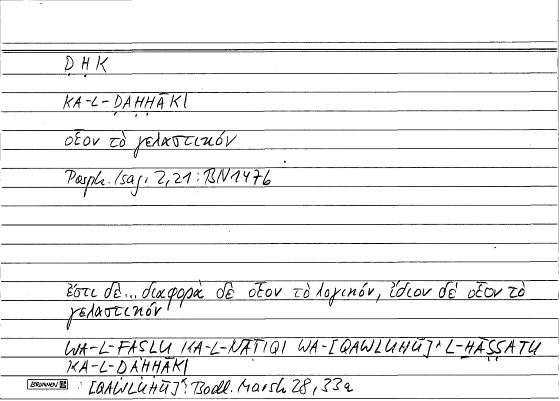 Ḍ Ḥ K
KA-L-ḌAḤḤĀKI
οἷον τὸ γελαστικόν
Porph. Isag. 2,21 : BN1476
ἔστι δὲ... διαφορὰ δὲ οἷον τὸ λογικόν, ἴδιον δὲ οἷον τὸ
γελαστικόν
WA-L-FAṢLU KA-L-NĀṬIQI WA-[QAWLUHŪ]^ L-ḪĀṢṢATU
KA-L-ḌAḤḤĀKI
BRUNNEN [QAWLUHŪ]^: Bodl. Marsh 28, 33a